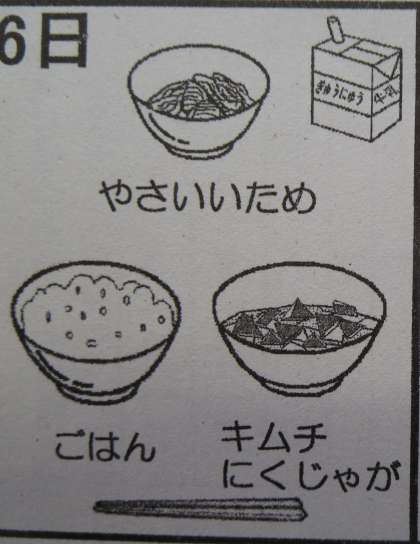 6日
ぎゅうにゅう
牛乳
やさいいため
ごはん
キムチ
にくじゃが